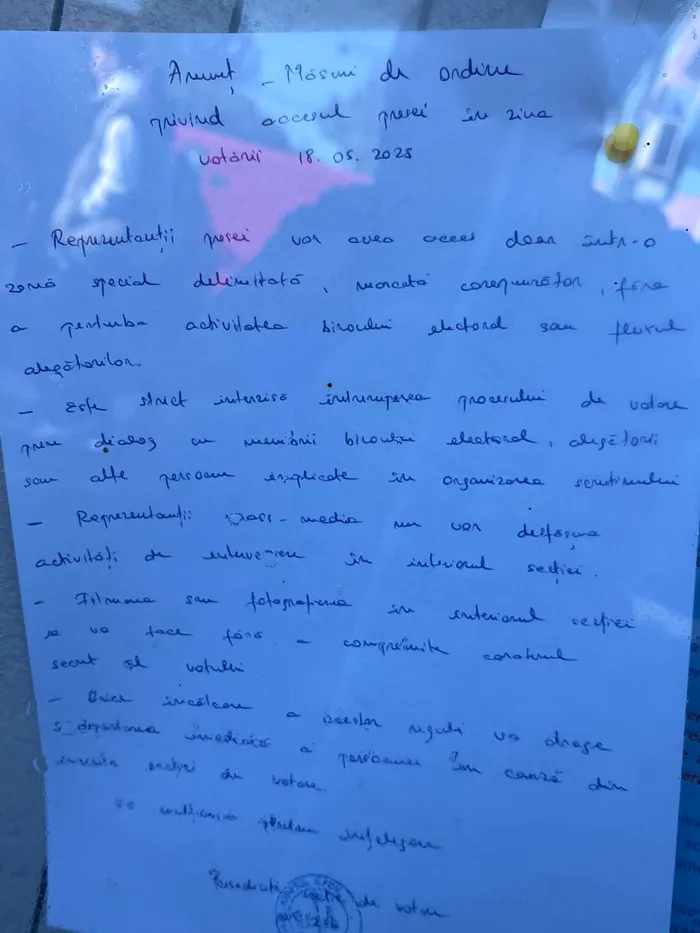 Anunț - Măsuri de ordine
privind accesul presei în ziua
votării 18.05.2025
- Reprezentanții presei vor avea acces doar într-o
zonă special delimitată, marcată corespunzător, fără
a perturba activitatea biroului electoral sau fluxul
alegătorilor.
- Este strict interzisă întreruperea procesului de votare
prin dialog cu membrii biroului electoral, alegătorii
sau alte persoane implicate în organizarea scrutinului
- Reprezentanții mass-media nu vor desfășura
activități de intervievare în interiorul secției.
- Filmarea sau fotografierea în interiorul secției
se va face fără a compromite caracterul
secret al votului
- Orice încălcare a acestor reguli va atrage
îndepărtarea imediată a persoanei în cauză din
incinta secției de votare.
Vă mulțumim pentru înțelegere
Președinte secție de votare